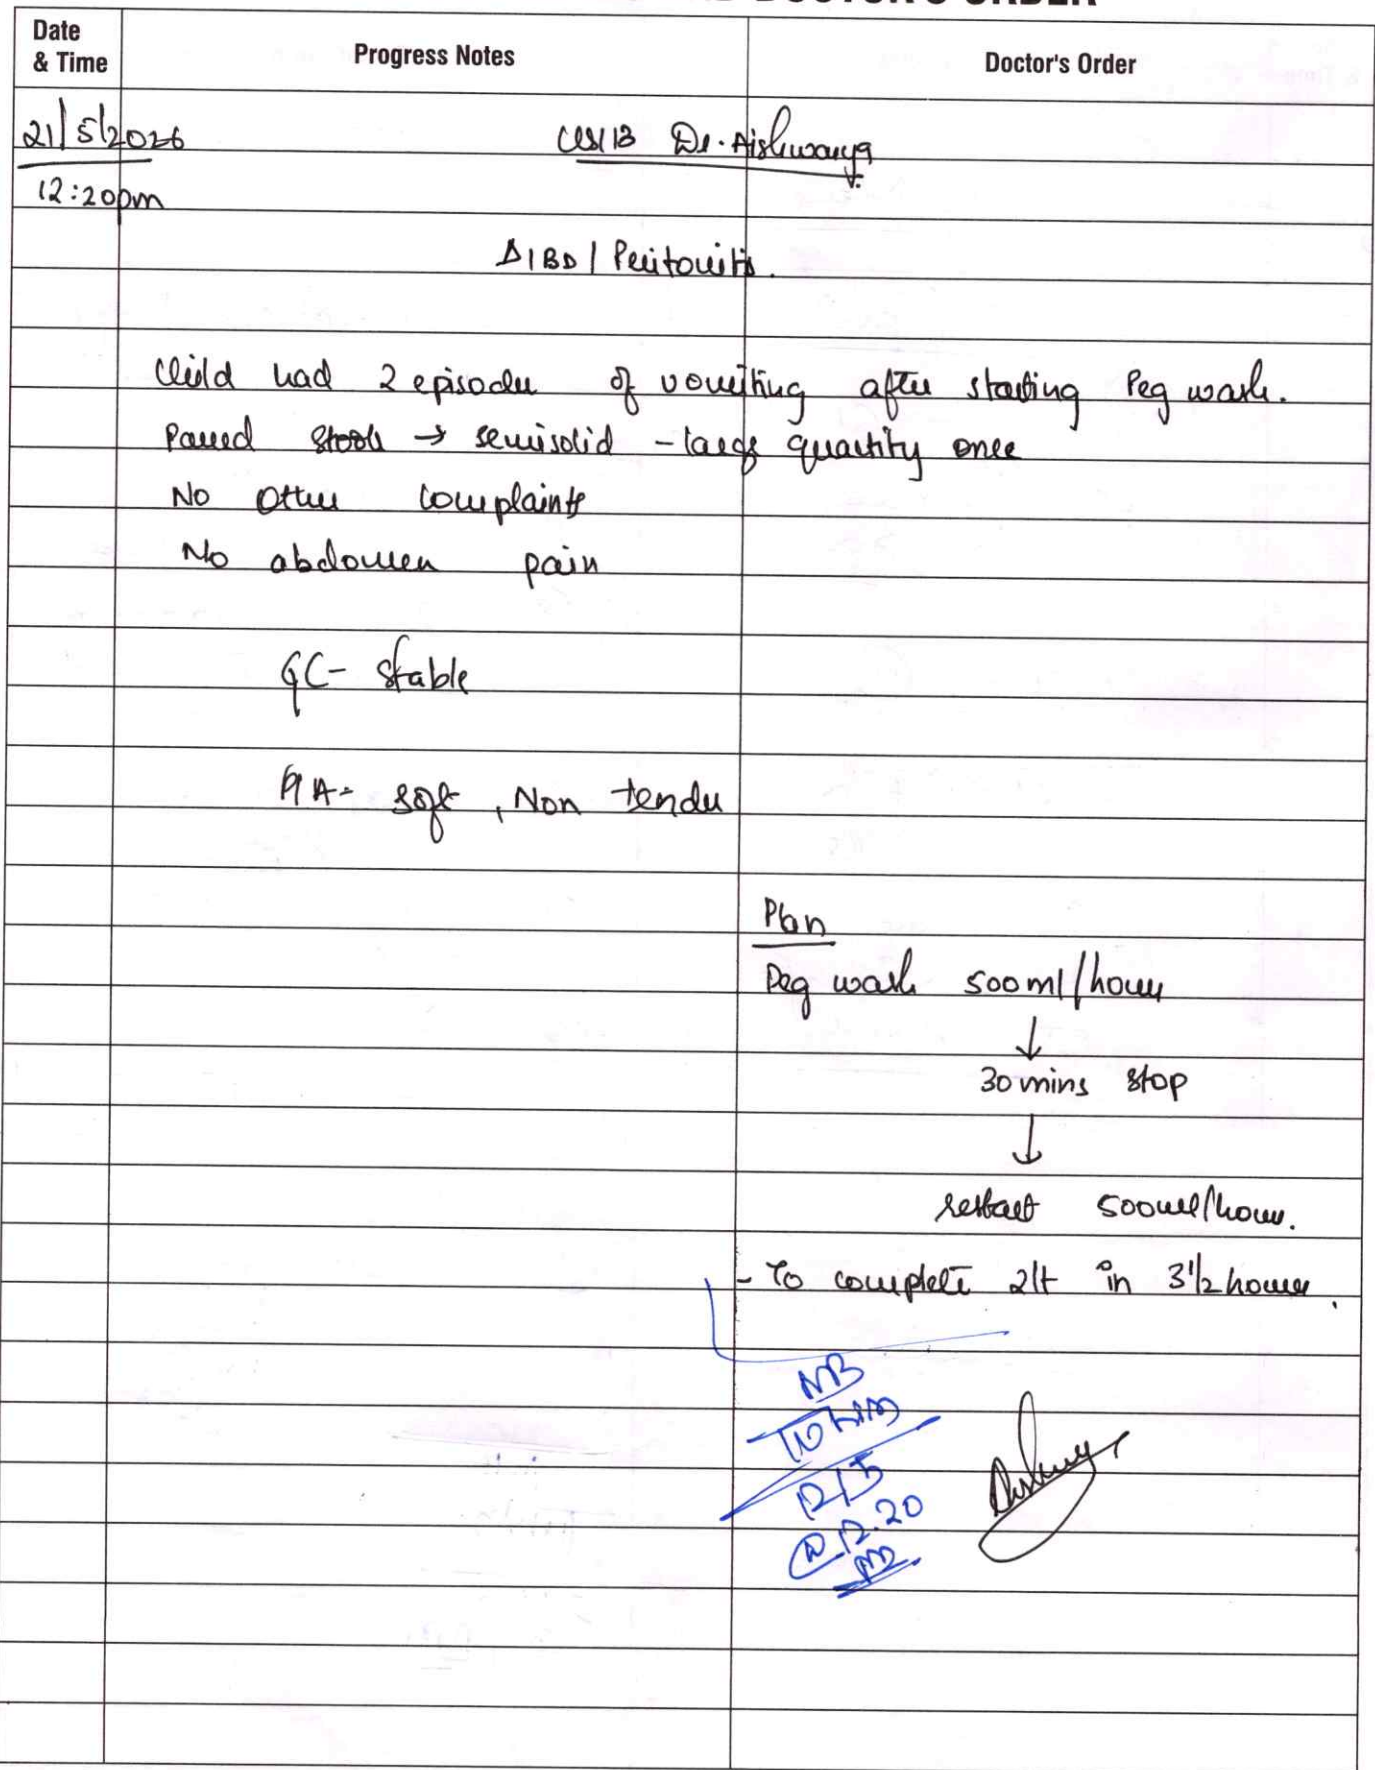 DOCTOR'S ORDER
Date & Time
Progress Notes
Doctor's Order
21/5/2026
12:20pm
C/S/B Dr. Aishwarya
Δ IBD / Peritonitis.
Child had 2 episodes of vomiting after starting Peg wash.
Passed stools → semisolid - large quantity once
No other complaints
No abdomen pain
GC- stable
P/A- soft, Non tender
Plan
Peg wash 500ml/hour
↓
30 mins stop
↓
restart 500ml/hour.
- To complete 2lt in 3 1/2 hours.
@ 12.20